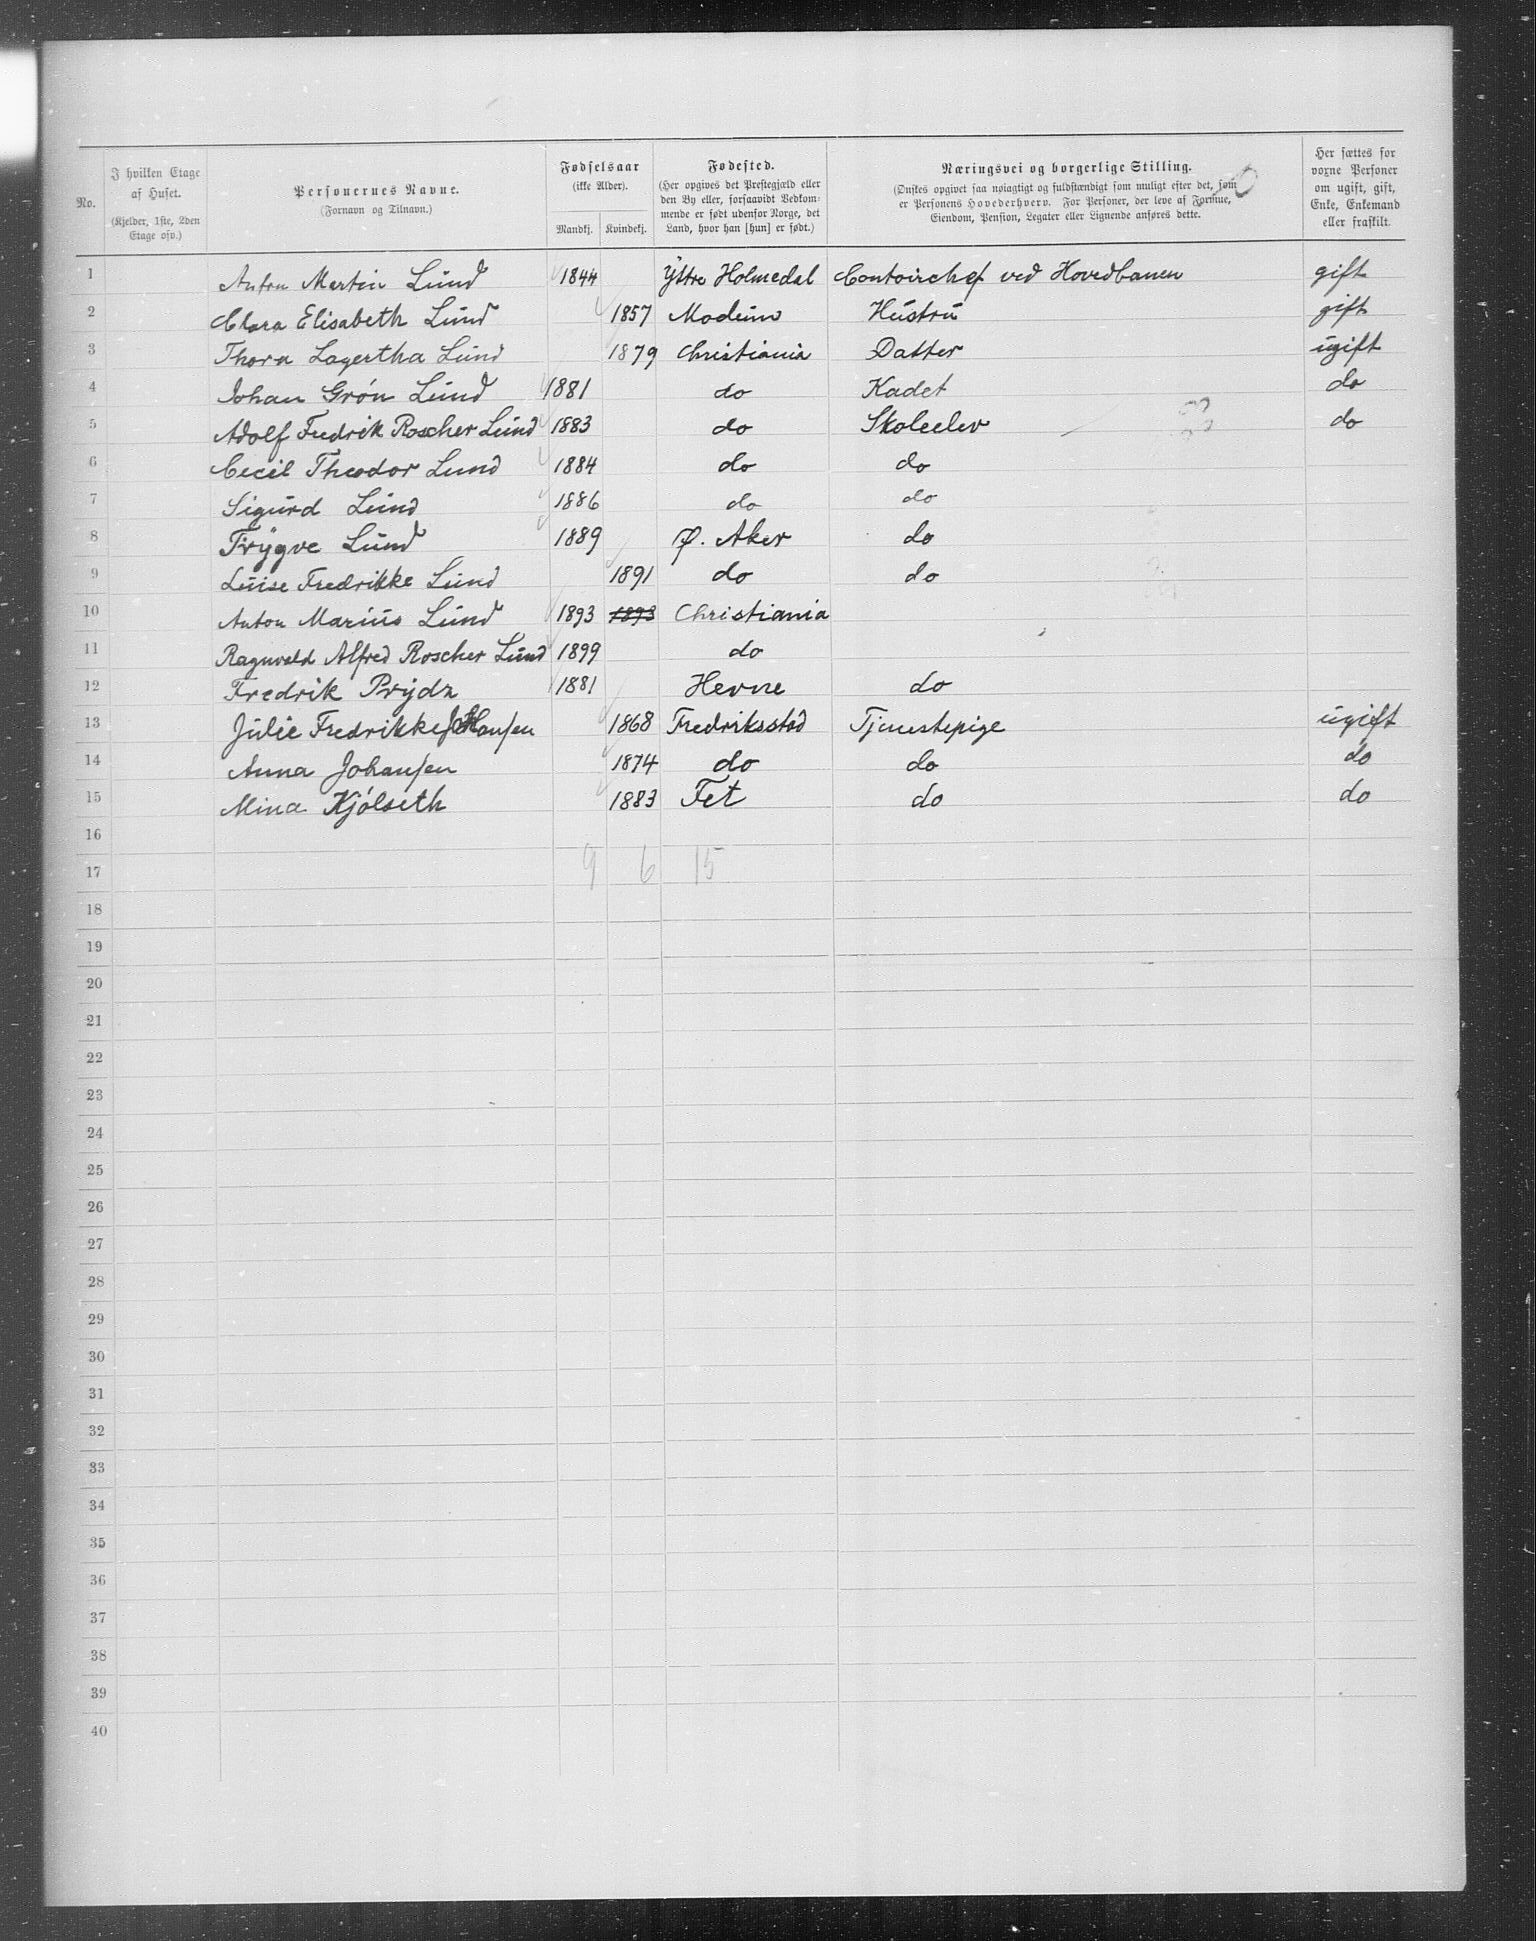 No.
I hvilken Etage af Huset.
(Kjelder, 1ste, 2den Etage osv.)
Personernes Navne.
(Fornavn og Tilnavn.)
Fødselsaar
(ikke Alder).
Mandkj.
Kvindekj.
Fødested.
(Her opgives det Prestegjæld eller den By eller, forsaavidt Vedkommende er født udenfor Norge, det Land, hvor han [hun] er født.)
Næringsvei og borgerlige Stilling.
(Ønskes opgivet saa nøiagtigt og fuldstændigt som muligt efter det, som er Personens Hovederhverv. For Personer, der leve af Formue, Eiendom, Pension, Legater eller Lignende anføres dette.
Her sættes for voxne Personer om ugift, gift, Enke, Enkemand eller fraskilt.
1 Anton Martin Lund 1844 Yttre Holmedal Contoirchef ved Hovedbanen gift
2 Clara Elisabeth Lund 1857 Modum Hustru gift
3 Thora Lagertha Lund 1879 Christiania Datter ugift
4 Johan Grøn Lund 1881 do Kadet do
5 Adolf Fredrik Roscher Lund 1883 do Skoleelev do
6 Cecil Theodor Lund 1884 do do
7 Sigurd Lund 1886 do do
8 Trygve Lund 1889 Ø. Aker do
9 Luise Fredrikke Lund 1891 do do
10 Anton Marius Lund 1893 1893 Christiania
11 Ragnvald Alfred Roscher Lund 1899 do
12 Fredrik Prydz 1881 Hevne do
13 Julie Fredrikke Hansen 1868 Fredriksstad Tjenestepige ugift
14 Anna Johansen 1874 do do do
15 Mina Kjólseth 1883 Fet do do
16
17 9 6 15
18
19
20
21
22
23
24
25
26
27
28
29
30
31
32
33
34
35
36
37
38
39
40